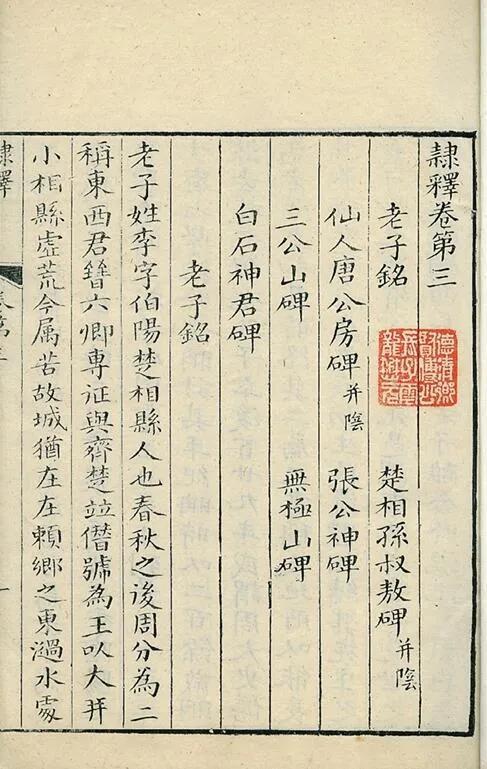 隷釋卷第三
老子銘 楚相孫叔敖碑 并陰
仙人唐公房碑 并陰 張公神碑
三公山碑 無極山碑
白石神君碑
老子銘
老子姓李字伯陽楚相縣人也春秋之後周分為二
稱東西君晉六卿專征與齊楚竝僭號為王以大并
小相縣虛荒今属苦故城猶在在頼鄉之東濄水處
隷釋